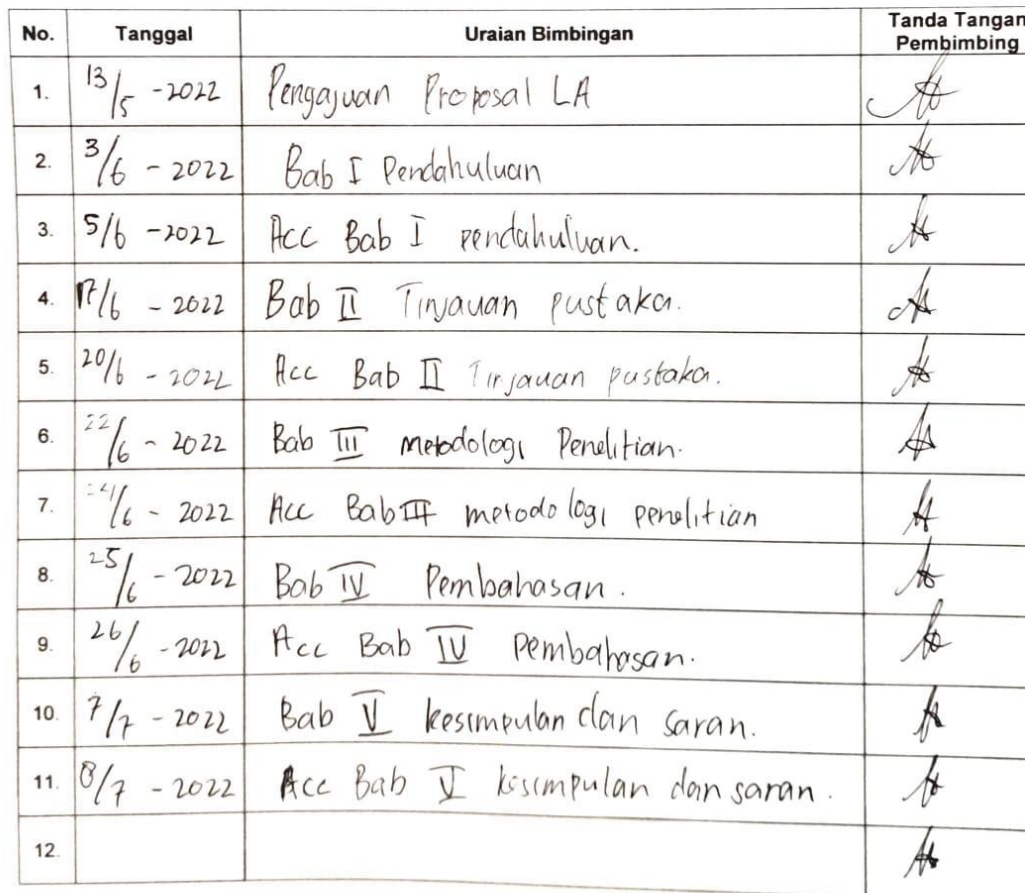 No. Tanggal Uraian Bimbingan Tanda Tangan Pembimbing
1. 13/5 - 2022 Pengajuan Proposal LA
2. 3/6 - 2022 Bab I Pendahuluan
3. 5/6 - 2022 Acc Bab I pendahuluan.
4. 17/6 - 2022 Bab II Tinjauan pustaka.
5. 20/6 - 2022 Acc Bab II Tinjauan pustaka.
6. 22/6 - 2022 Bab III metodologi Penelitian.
7. 24/6 - 2022 Acc Bab III metodologi penelitian
8. 25/6 - 2022 Bab IV Pembahasan.
9. 26/6 - 2022 Acc Bab IV Pembahasan.
10. 7/7 - 2022 Bab V kesimpulan dan saran.
11. 8/7 - 2022 Acc Bab V kesimpulan dan saran.
12.